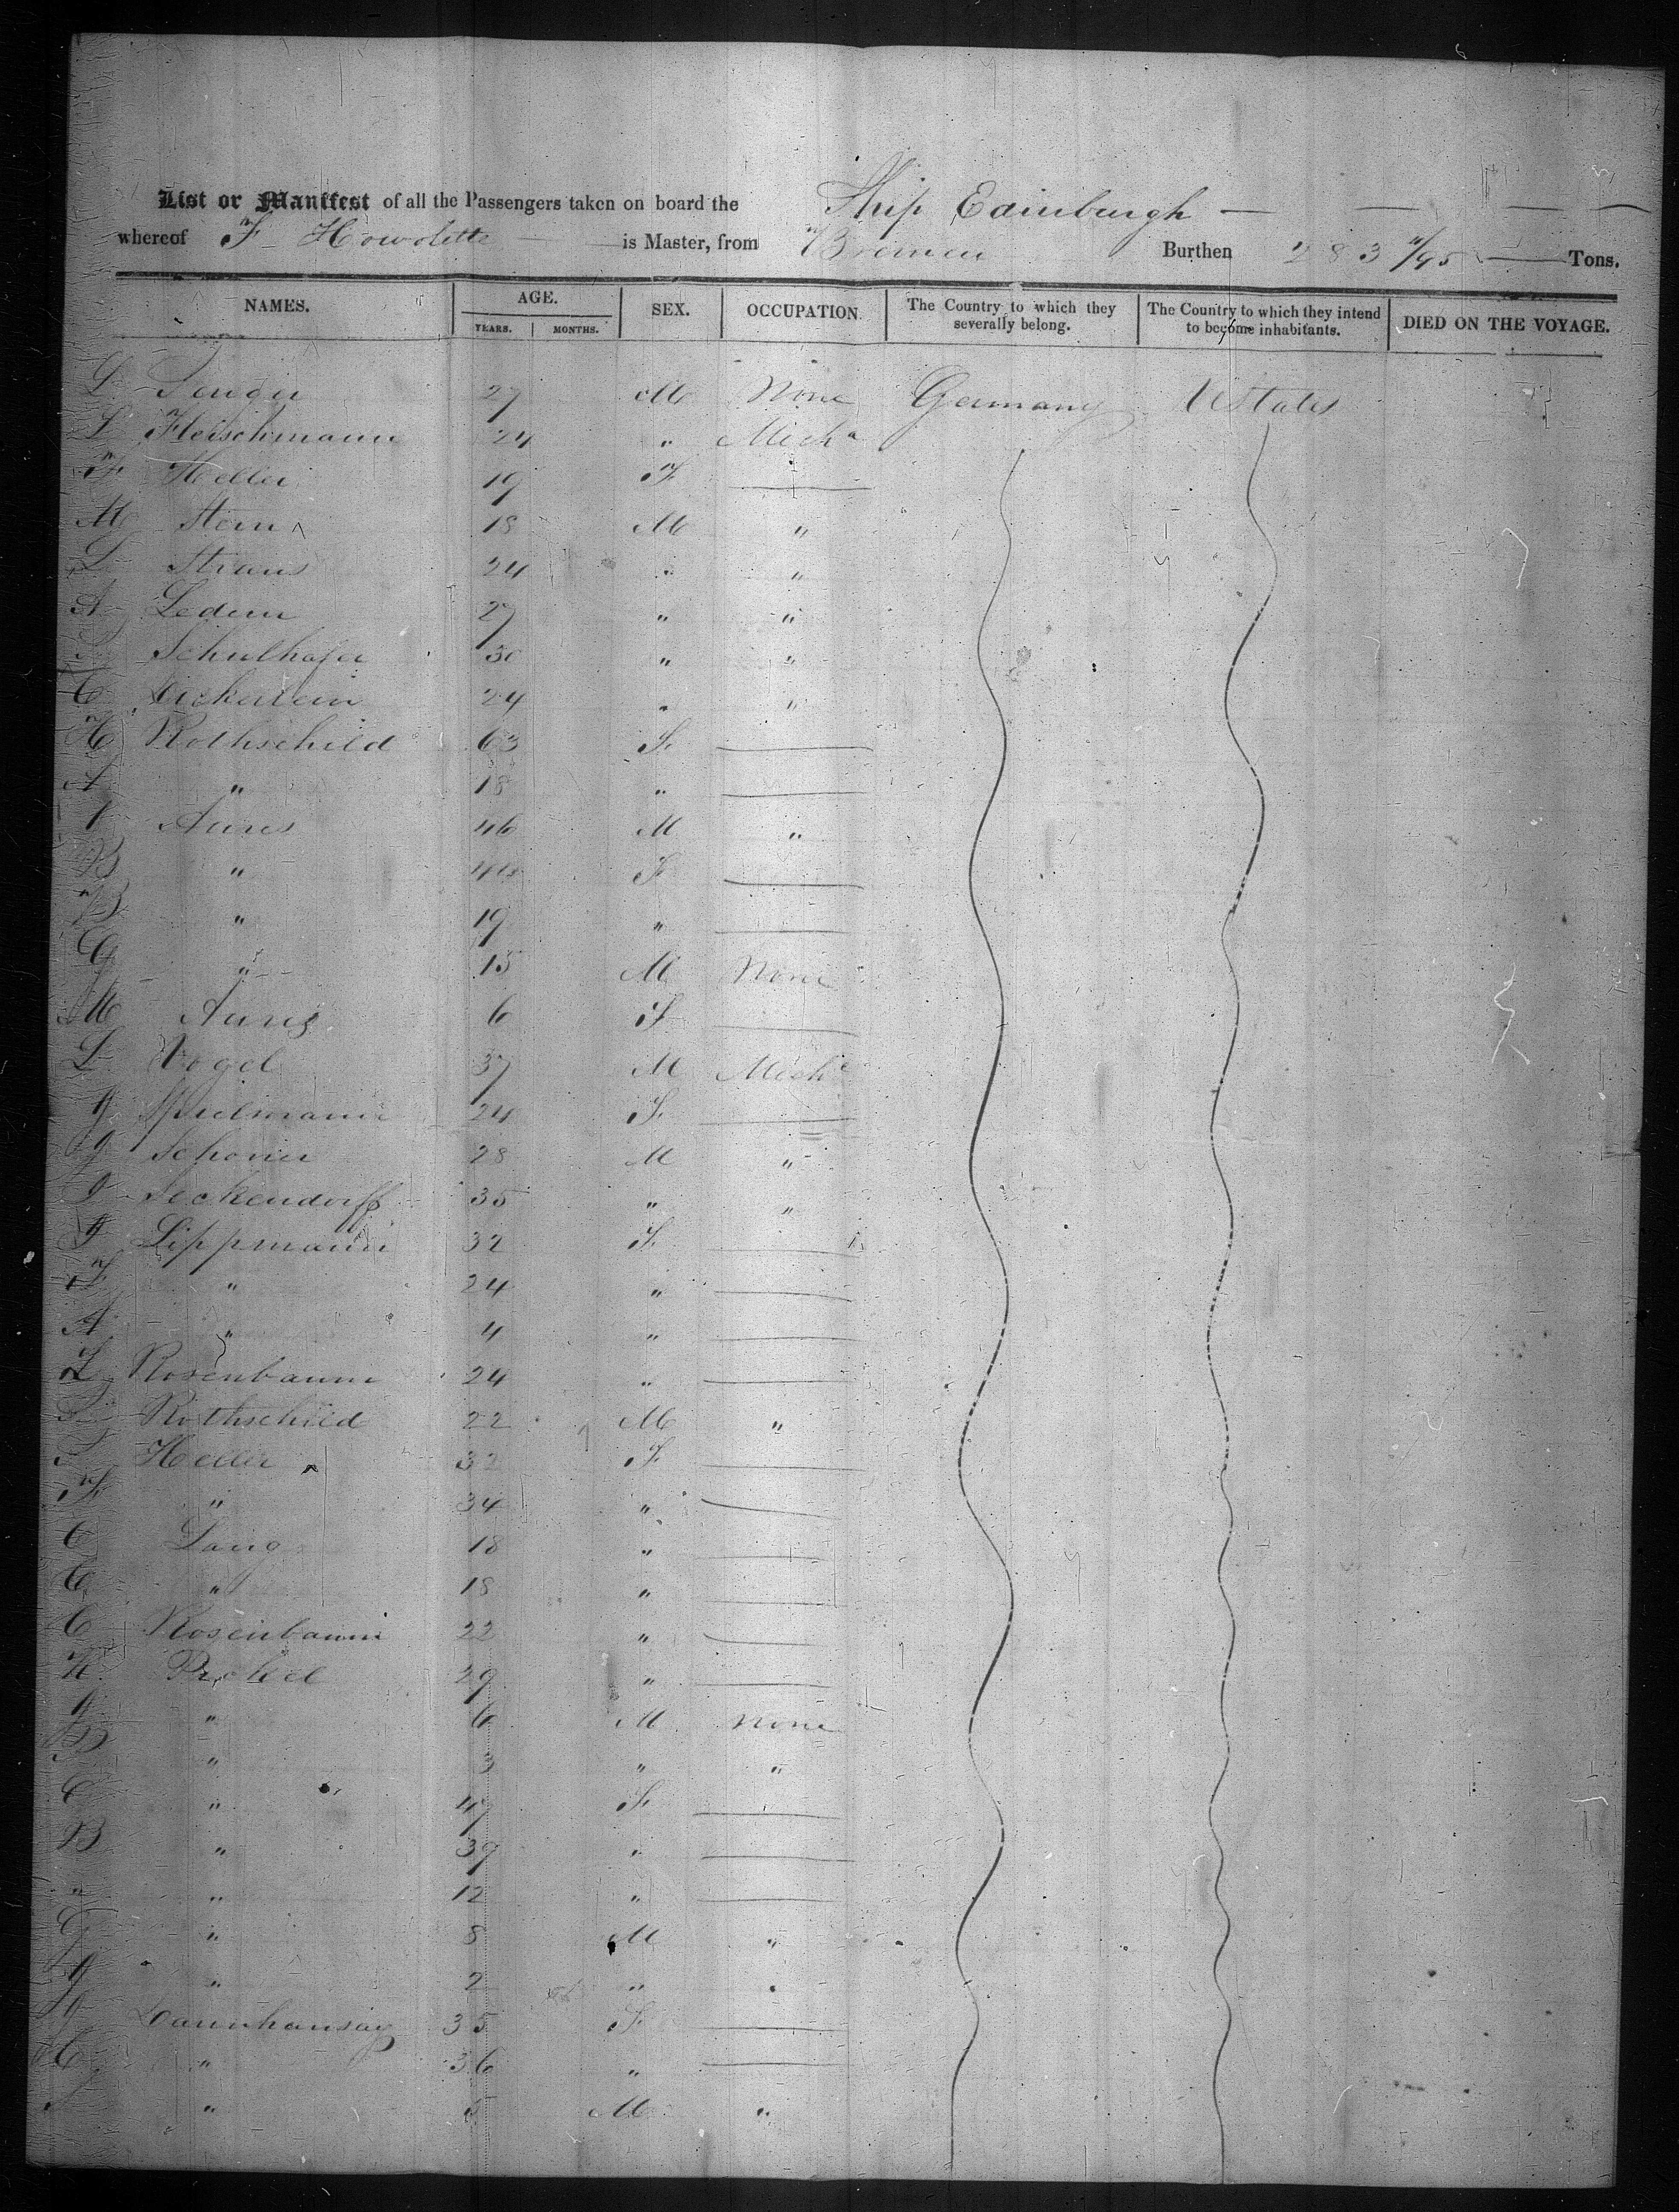 List or Manifest of all the Passengers taken on board the Ship Edinburgh
whereof F Howolette is Master, from Bremen Burthen 283 /95 Tons.
NAMES. AGE. SEX. OCCUPATION. The Country to which they severally belong. The Country to which they intend to become inhabitants. DIED ON THE VOYAGE.
YEARS. MONTHS.
L 27 M None Germany UStates
L Fleischmann 24 " Mech
F Heller 19 F
M Stern 18 M "
L Straus 24 " "
A Lederer 27 " "
Schulhafer 30 " "
C 24 " "
H Rothschild 63 F
A " 18 "
46 M "
B " F
B " 19 "
G " 15 M None
M 6 F
L Vogel 37 M Mech
J Spielmann 24 F
J 28 M "
J Seckendorff 35 " "
J Lippmann 32 F
F " 24 "
A " 4 "
L Rosenbaum 24 "
Rothschild 22 M "
Heller 32 F
F " 34 "
C Lang 18 "
C " 18 "
C Rosenbaum 22 "
K 29 "
J " 6 M None
B " 3 " "
C " F
B " 39 "
" " 12 "
G " 8 M "
J " 2 " "
35 F
C " 36 "
" M "